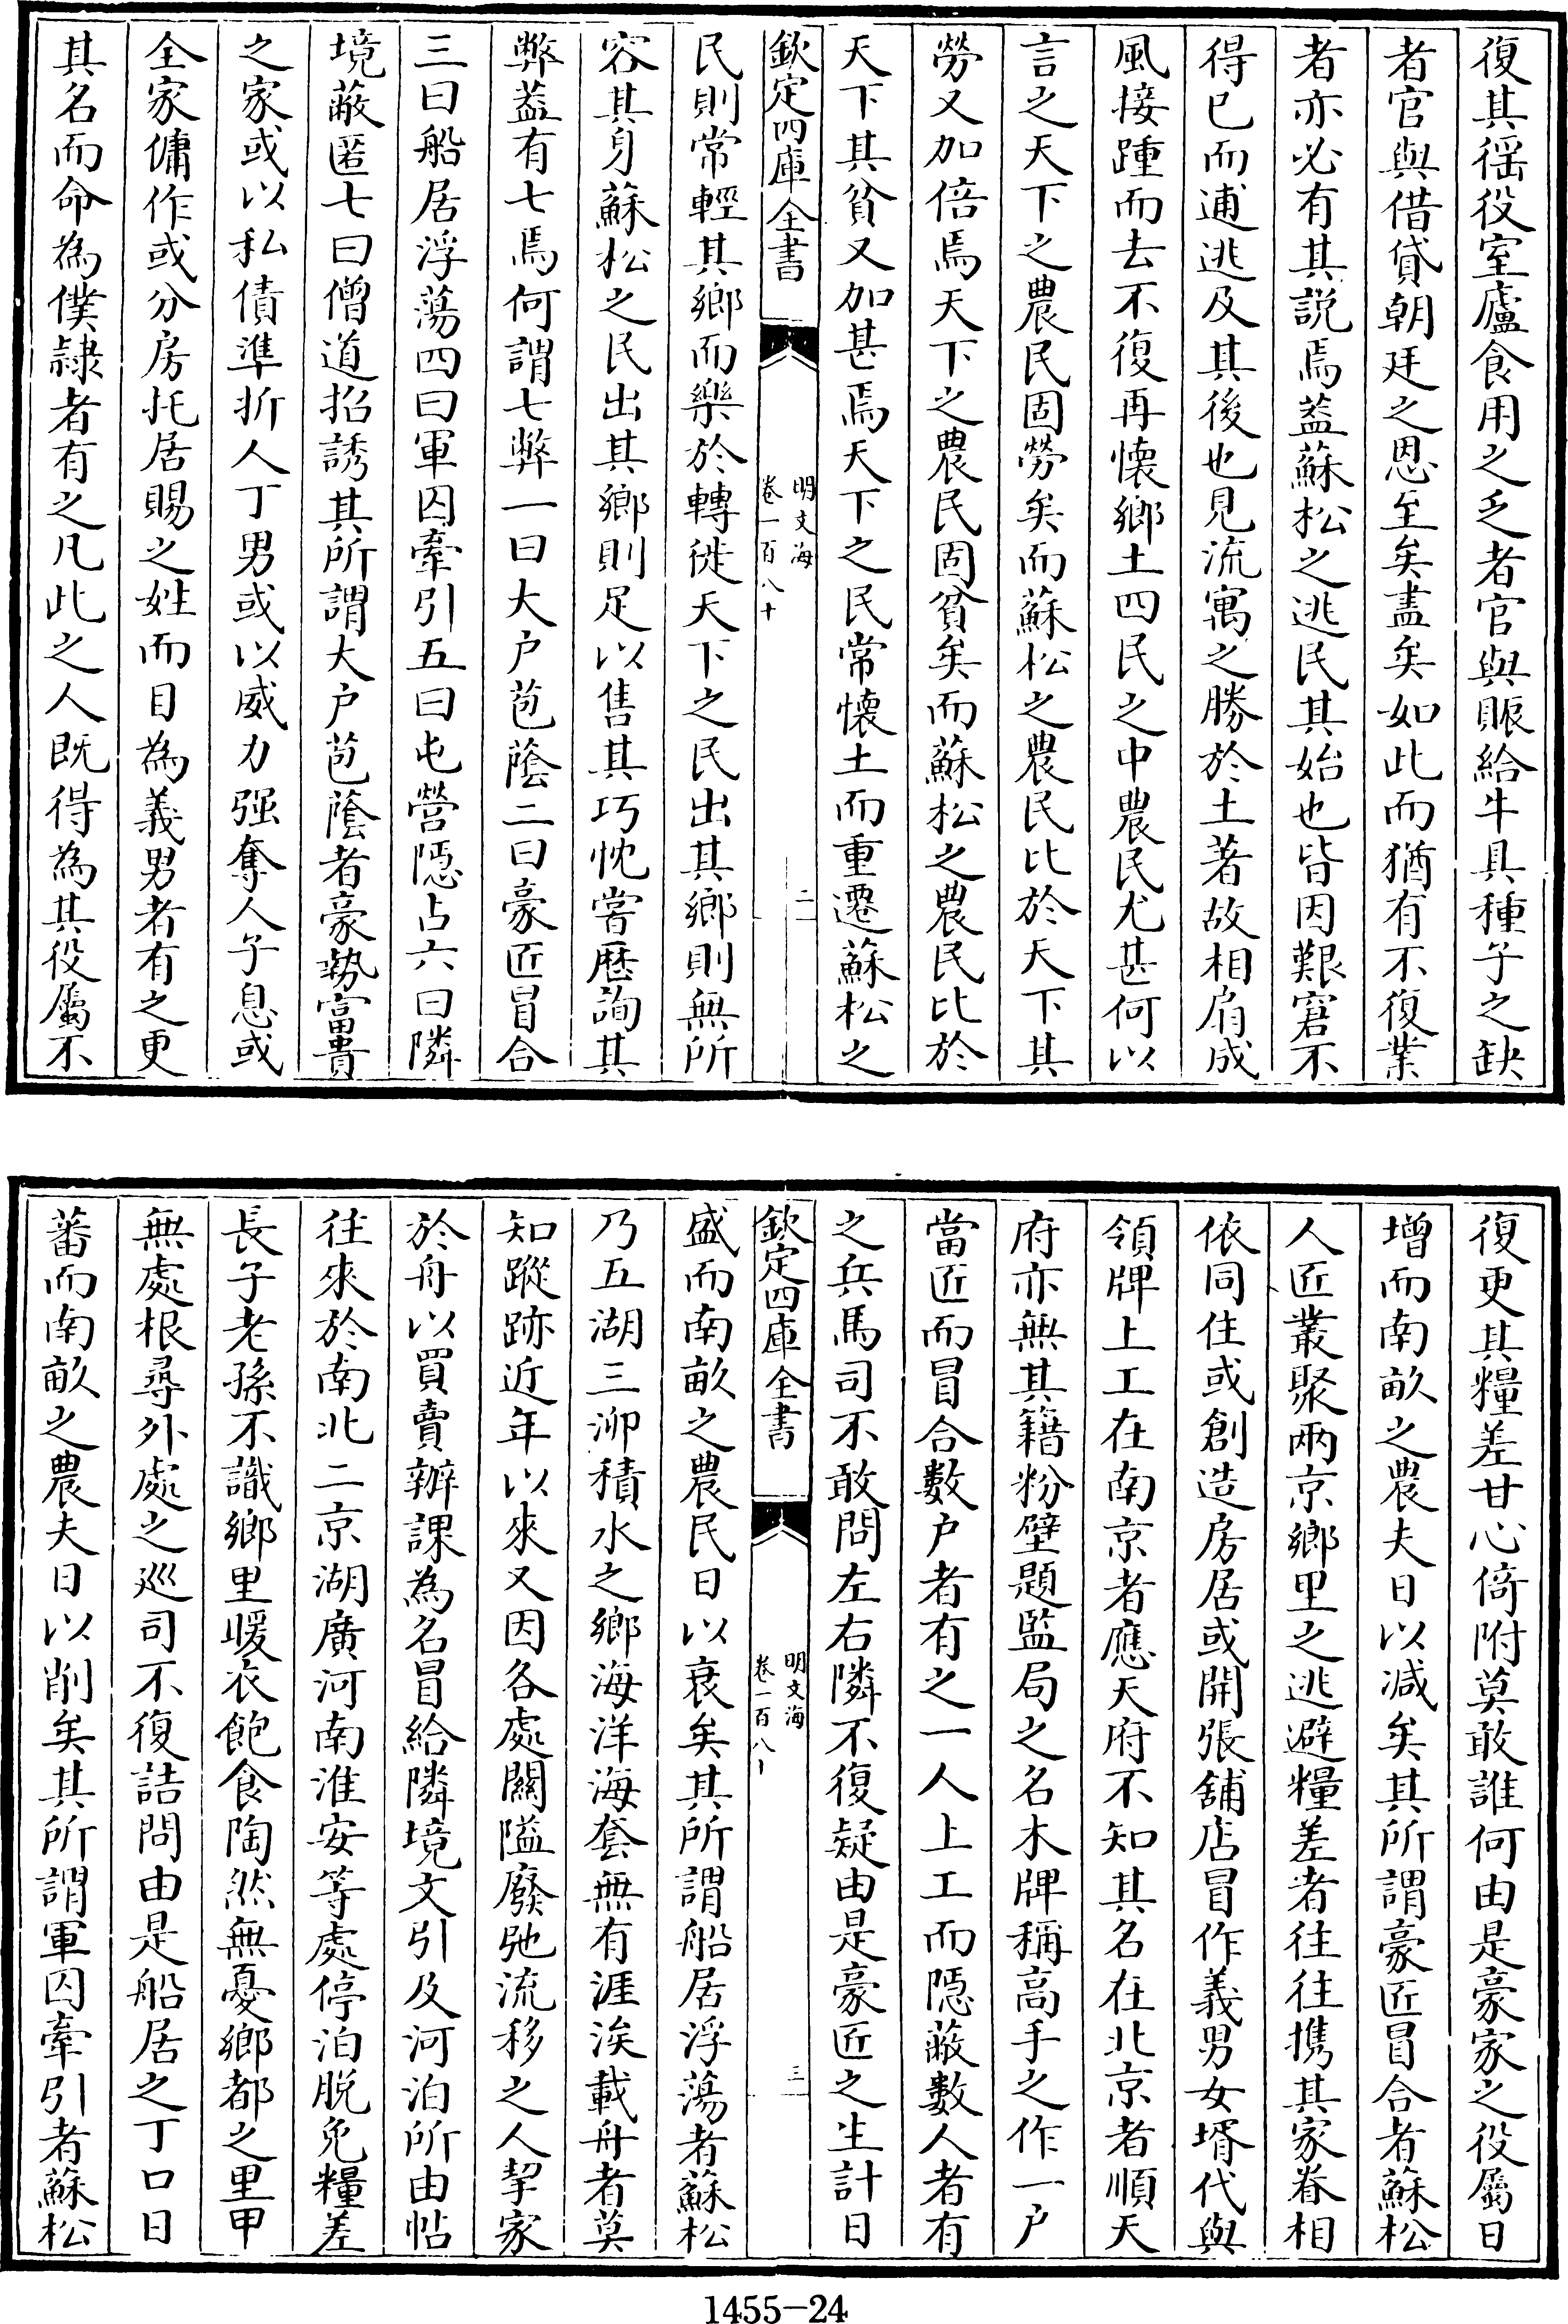 復其徭役室廬食用之乏者官與賑給牛具種子之缺
者官與借貸朝廷之恩至矣盡矣如此而猶有不復業
者亦必有其説焉葢蘇松之逃民其始也皆因艱窘不
得已而逋逃及其後也見流寓之勝於土著故相扇成
風接踵而去不復再懐鄉土四民之中農民尤甚何以
言之天下之農民固勞矣而蘇松之農民比於天下其
勞又加倍焉天下之農民固貧矣而蘇松之農民比於
天下其貧又加甚焉天下之民常懷土而重遷蘇松之
欽定四庫全書
明文海
卷一百八十
二
民則常輕其鄉而樂於轉徙天下之民出其鄉則無所
容其身蘇松之民出其鄉則足以售其巧忱嘗歴詢其
弊葢有七焉何謂七弊一曰大户苞蔭二曰豪匠冒合
三曰船居浮蕩四曰軍囚牽引五曰屯營隠占六曰隣
境蔽匿七曰僧道招誘其所謂大户苞蔭者豪勢富貴
之家或以私債準折人丁男或以威力强奪人子息或
全家傭作或分房托居賜之姓而目為義男者有之更
其名而命為僕隷者有之凡此之人既得為其役屬不
復更其糧差甘心倚附莫敢誰何由是豪家之役屬日
增而南畝之農夫日以減矣其所謂豪匠冒合者蘇松
人匠叢聚兩京鄉里之逃避糧差者往往携其家眷相
依同住或創造房居或開張鋪店冒作義男女壻代與
領牌上工在南京者應天府不知其名在北京者順天
府亦無其籍粉壁題監局之名木牌稱高手之作一户
當匠而冒合數户者有之一人上工而隠蔽數人者有
之兵馬司不敢問左右隣不復疑由是豪匠之生計日
欽定四庫全書
明文海
卷一百八十
三
盛而南畝之農民日以衰矣其所謂船居浮蕩者蘇松
乃五湖三泖積水之鄉海洋海套無有涯涘載舟者莫
知蹤跡近年以來又因各處關隘廢弛流移之人挈家
於舟以買賣辦課為名冒給隣境文引及河泊所由帖
往來於南北二京湖廣河南淮安等處停泊脱免糧差
長子老孫不識鄉里暖衣飽食陶然無憂鄉都之里甲
無處根尋外處之巡司不復詰問由是船居之丁口日
蕃而南畝之農夫日以削矣其所謂軍囚牽引者蘇松
1455-24